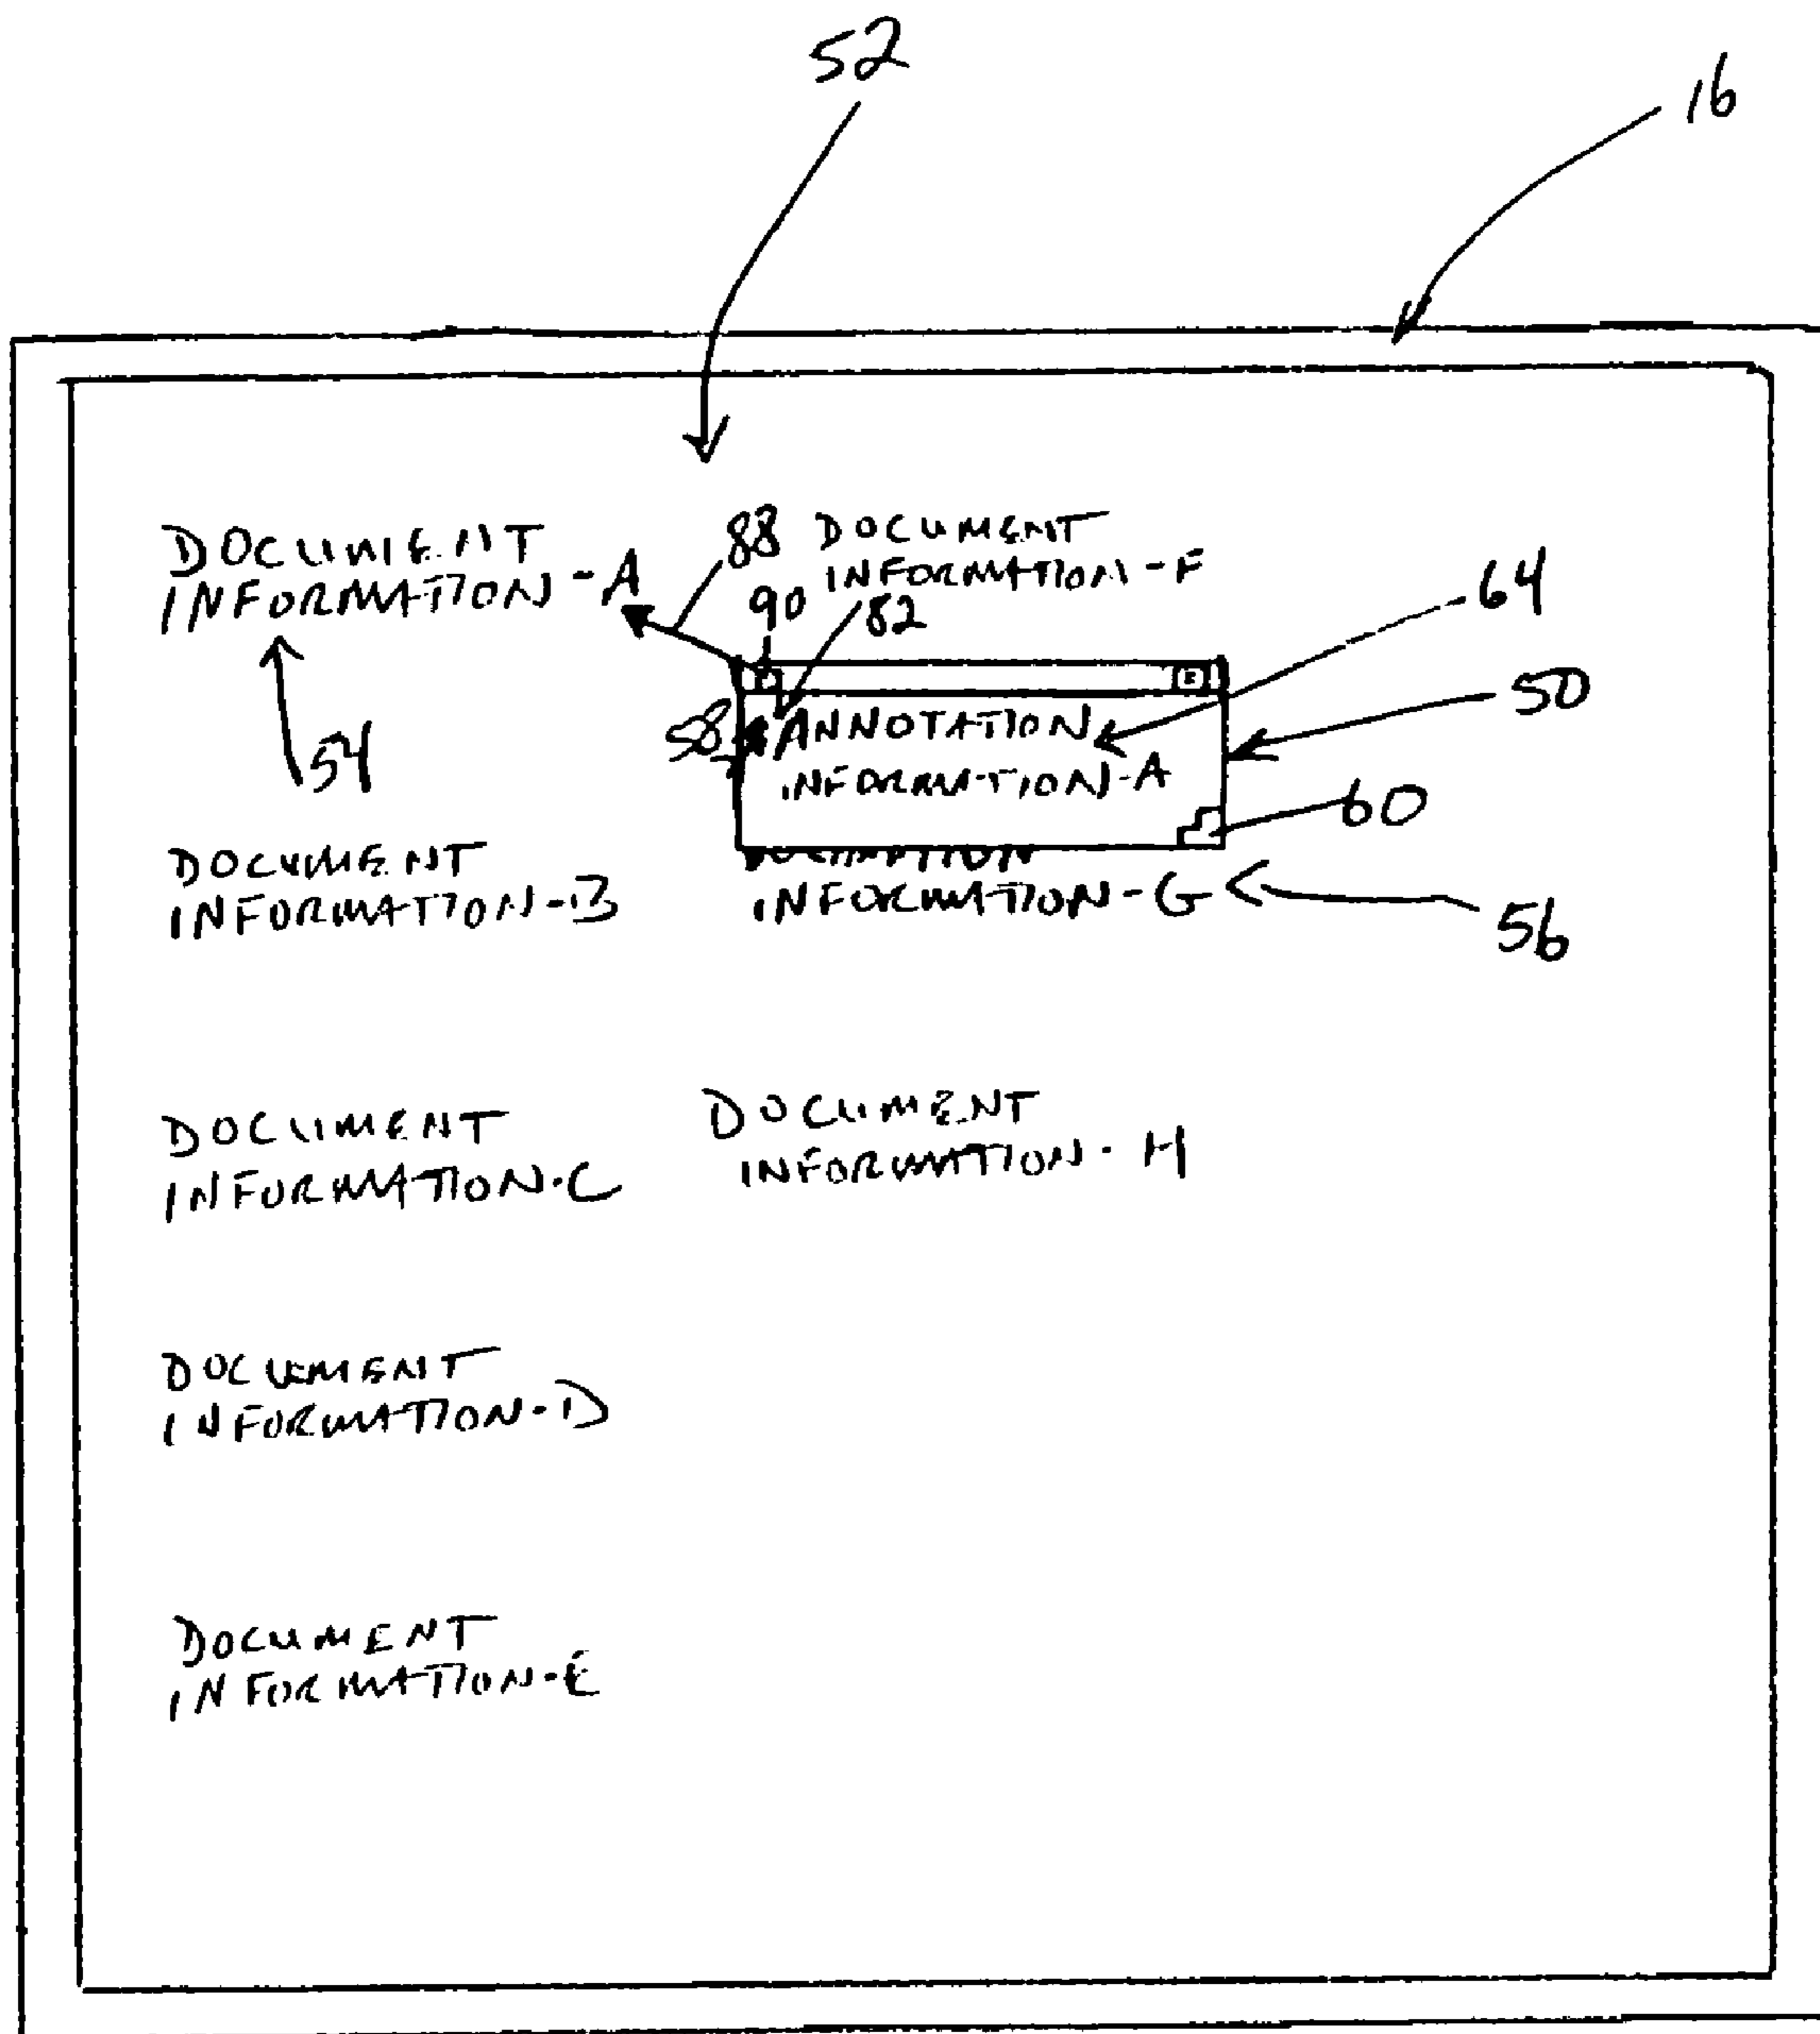 52
16
DOCUMENT
INFORMATION-A
88
DOCUMENT
INFORMATION-F
90
82
64
54
58
ANNOTATION
INFORMATION-A
50
60
DOCUMENT
INFORMATION-B
INFORMATION-G
56
DOCUMENT
INFORMATION-C
DOCUMENT
INFORMATION-H
DOCUMENT
INFORMATION-D
DOCUMENT
INFORMATION-E